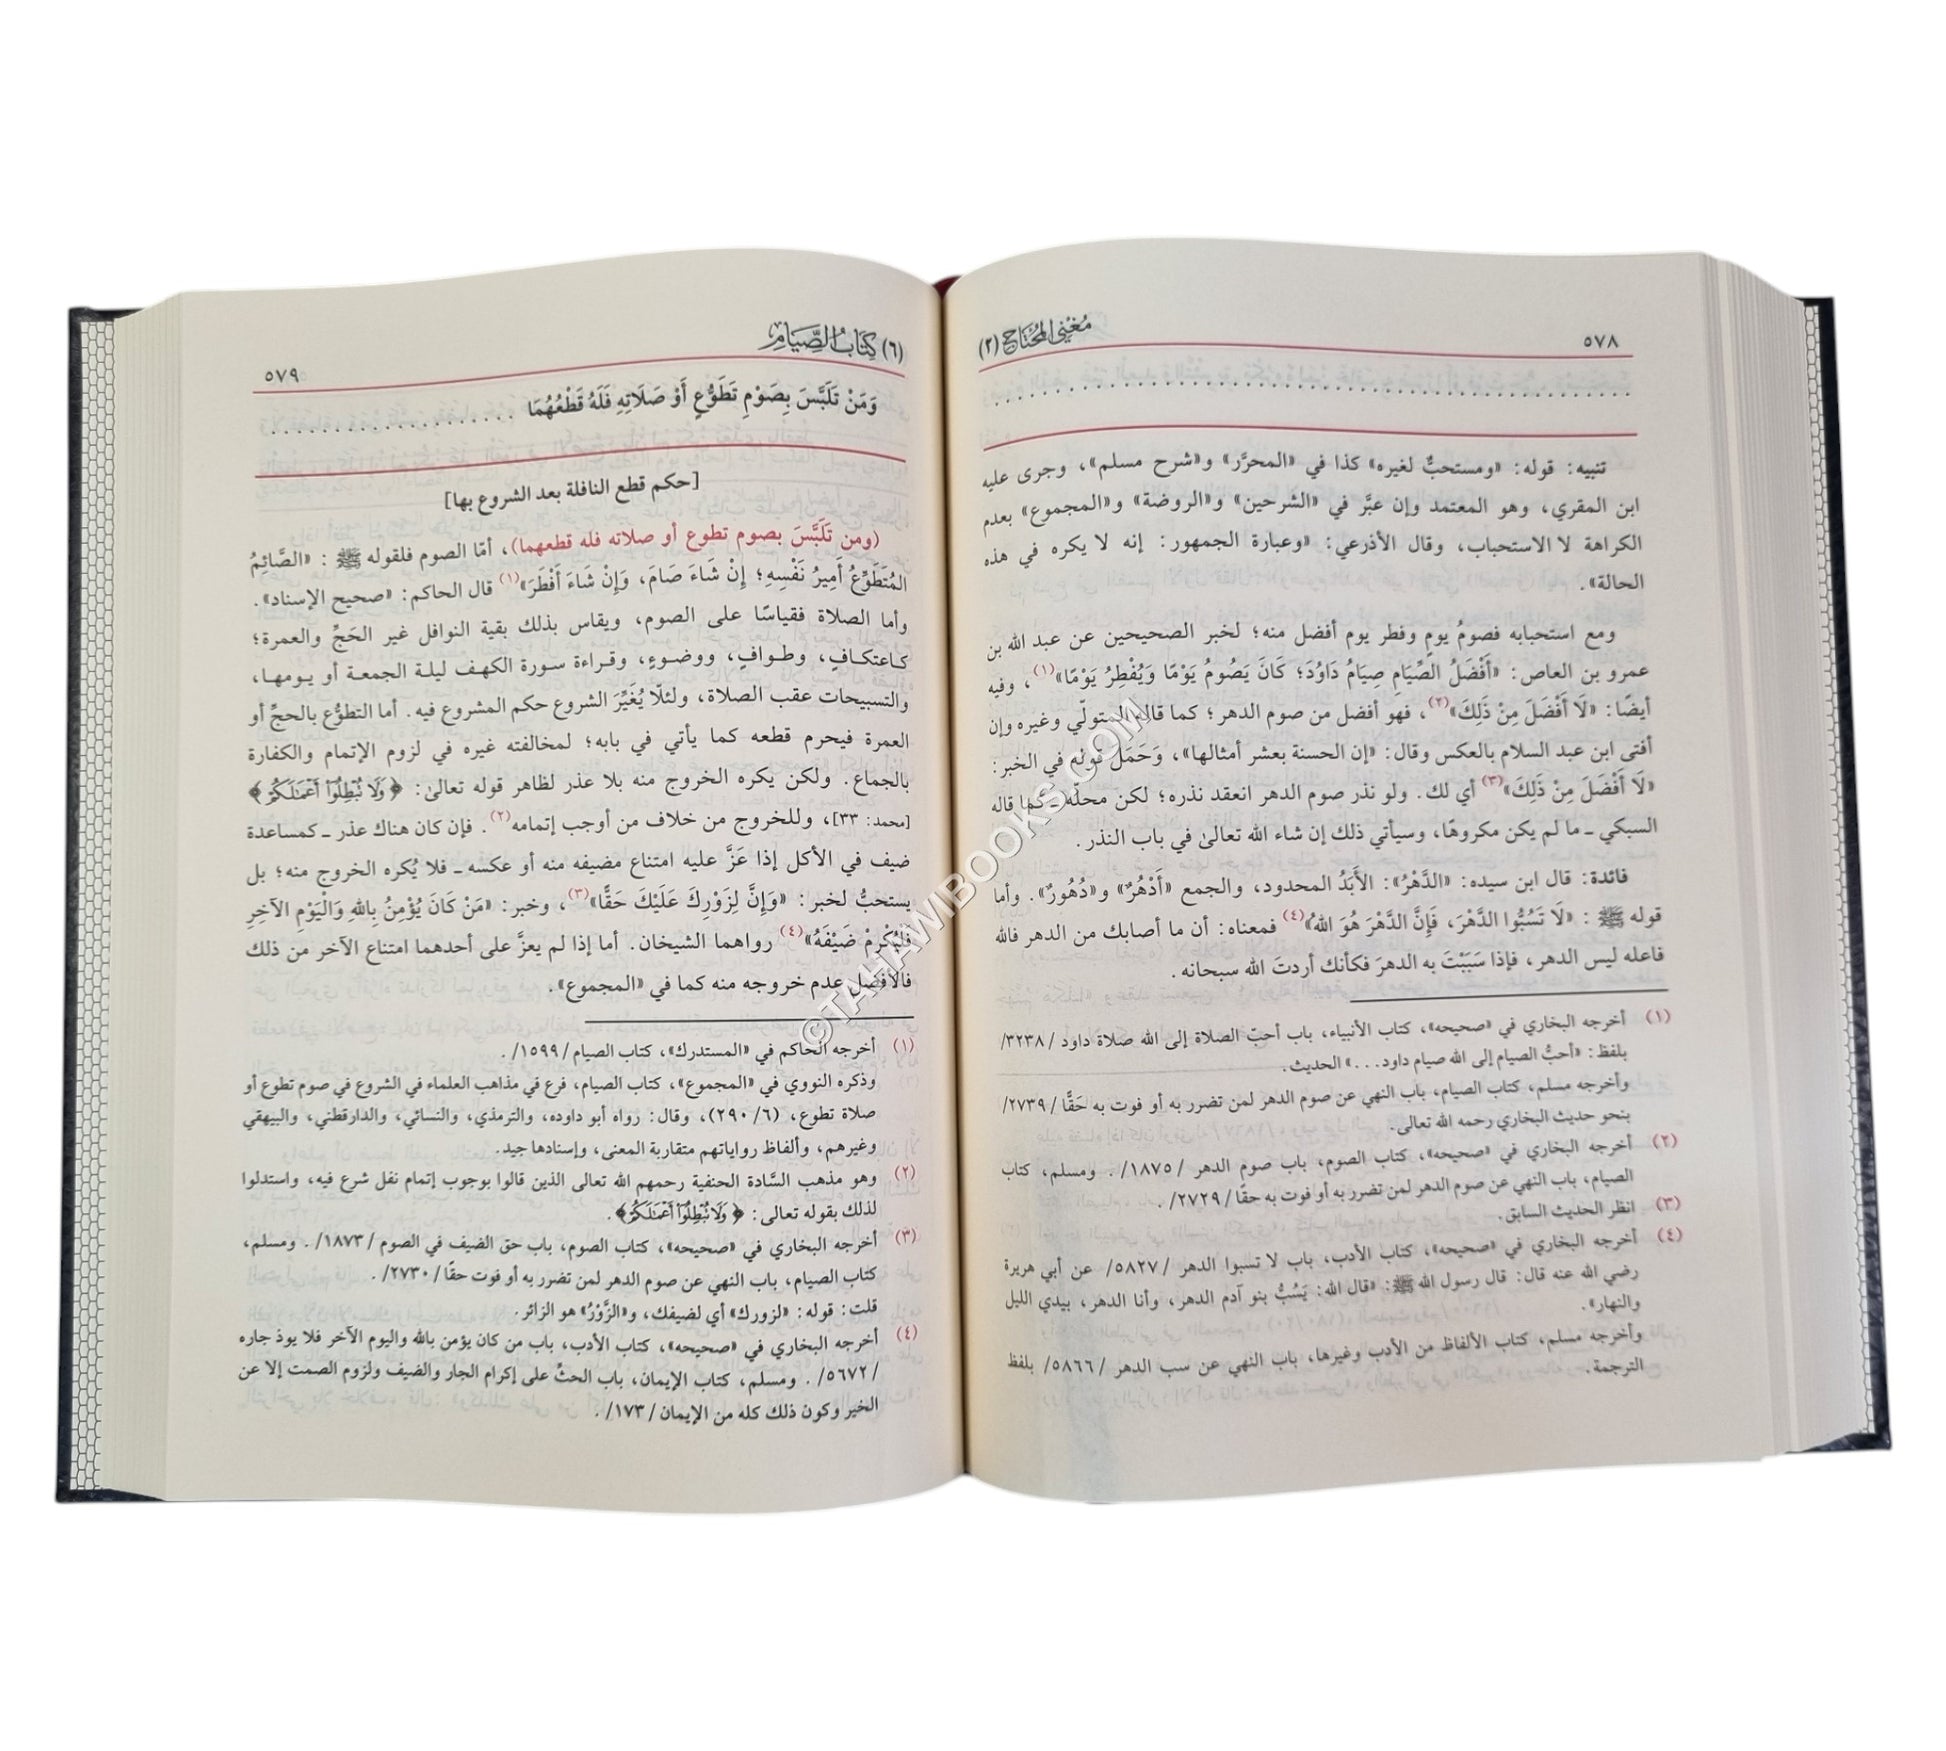 ٥٧٨
مُغْنِي المُحْتَاجِ (٢)
تنبيه: قوله: «ومستحبٌّ لغيره» كذا في «المحرَّر» و«شرح مسلم»، وجرى عليه
ابن المقري، وهو المعتمد وإن عبَّر في «الشرحين» و«الروضة» و«المجموع» بعدم
الكراهة لا الاستحباب، وقال الأذرعي: «وعبارة الجمهور: إنه لا يكره في هذه
الحالة».
ومع استحبابه فصومُ يومٍ وفطر يوم أفضل منه؛ لخبر الصحيحين عن عبد الله بن
عمرو بن العاص: «أَفْضَلُ الصِّيَامِ صِيَامُ دَاوُدَ؛ كَانَ يَصُومُ يَوْمًا وَيُفْطِرُ يَوْمًا»(١)، وفيه
أيضًا: «لَا أَفْضَلَ مِنْ ذَلِكَ»(٢)، فهو أفضل من صوم الدهر؛ كما قاله المتولّي وغيره وإن
أفتى ابن عبد السلام بالعكس وقال: «إن الحسنة بعشر أمثالها»، وَحَمَلَ قوله في الخبر:
«لَا أَفْضَلَ مِنْ ذَلِكَ»(٣) أي لك. ولو نذر صوم الدهر انعقد نذره؛ لكن محلّه ـ كما قاله
السبكي ـ ما لم يكن مكروهًا، وسيأتي ذلك إن شاء الله تعالىٰ في باب النذر.
فائدة: قال ابن سيده: «الدَّهْرُ»: الأَبَدُ المحدود، والجمع «أَدْهُرٌ» و«دُهُورٌ». وأما
قوله ﷺ: «لَا تَسُبُّوا الدَّهْرَ، فَإِنَّ الدَّهْرَ هُوَ اللهُ»(٤) فمعناه: أن ما أصابك من الدهر فالله
فاعله ليس الدهر، فإذا سَبَبْتَ به الدهرَ فكأنك أردتَ الله سبحانه.
(١) أخرجه البخاري في «صحيحه»، كتاب الأنبياء، باب أحبّ الصلاة إلى الله صلاة داود /٣٢٣٨/
بلفظ: «أحبُّ الصيام إلى الله صيام داود...» الحديث.
وأخرجه مسلم، كتاب الصيام، باب النهي عن صوم الدهر لمن تضرر به أو فوت به حَقًّا /٢٧٣٩/
بنحو حديث البخاري رحمه الله تعالى.
(٢) أخرجه البخاري في «صحيحه»، كتاب الصوم، باب صوم الدهر /١٨٧٥/. ومسلم، كتاب
الصيام، باب النهي عن صوم الدهر لمن تضرر به أو فوت به حقًا /٢٧٢٩/.
(٣) انظر الحديث السابق.
(٤) أخرجه البخاري في «صحيحه»، كتاب الأدب، باب لا تسبوا الدهر /٥٨٢٧/ عن أبي هريرة
رضي الله عنه قال: قال رسول الله ﷺ: «قال الله: يَسُبُّ بنو آدم الدهر، وأنا الدهر، بيدي الليل
والنهار».
وأخرجه مسلم، كتاب الألفاظ من الأدب وغيرها، باب النهي عن سب الدهر /٥٨٦٦/ بلفظ
الترجمة.
(٦) كِتَابُ الصِّيَامِ
٥٧٩
وَمَنْ تَلَبَّسَ بِصَوْمِ تَطَوُّعٍ أَوْ صَلَاتِهِ فَلَهُ قَطْعُهُمَا
[حكم قطع النافلة بعد الشروع بها]
(ومن تَلَبَّسَ بصوم تطوع أو صلاته فله قطعهما)، أمّا الصوم فلقوله ﷺ: «الصَّائِمُ
المُتَطَوِّعُ أَمِيرُ نَفْسِهِ؛ إِنْ شَاءَ صَامَ، وَإِنْ شَاءَ أَفْطَرَ»(١) قال الحاكم: «صحيح الإسناد».
وأما الصلاة فقياسًا على الصوم، ويقاس بذلك بقية النوافل غير الحَجِّ والعمرة؛
كاعتكافٍ، وطوافٍ، ووضوءٍ، وقراءة سورة الكهف ليلة الجمعة أو يومها،
والتسبيحات عقب الصلاة، ولئلّا يُغَيِّرَ الشروع حكم المشروع فيه. أما التطوُّع بالحجِّ أو
العمرة فيحرم قطعه كما يأتي في بابه؛ لمخالفته غيره في لزوم الإتمام والكفارة
بالجماع. ولكن يكره الخروج منه بلا عذر لظاهر قوله تعالىٰ: ﴿وَلَا تُبْطِلُوٓا۟ أَعْمَـٰلَكُمْ﴾
[محمد: ٣٣]، وللخروج من خلاف من أوجب إتمامه(٢). فإن كان هناك عذر ـ كمساعدة
ضيف في الأكل إذا عَزَّ عليه امتناع مضيفه منه أو عكسه ـ فلا يُكره الخروج منه؛ بل
يستحبُّ لخبر: «وَإِنَّ لِزَوْرِكَ عَلَيْكَ حَقًّا»(٣)، وخبر: «مَنْ كَانَ يُؤْمِنُ بِاللهِ وَالْيَوْمِ الآخِرِ
فَلْيُكْرِمْ ضَيْفَهُ»(٤) رواهما الشيخان. أما إذا لم يعزَّ على أحدهما امتناع الآخر من ذلك
فالأفضل عدم خروجه منه كما في «المجموع».
(١) أخرجه الحاكم في «المستدرك»، كتاب الصيام /١٥٩٩/.
وذكره النووي في «المجموع»، كتاب الصيام، فرع في مذاهب العلماء في الشروع في صوم تطوع أو
صلاة تطوع، (٢٩٠/٦)، وقال: رواه أبو داوده، والترمذي، والنسائي، والدارقطني، والبيهقي
وغيرهم، وألفاظ رواياتهم متقاربة المعنى، وإسنادها جيد.
(٢) وهو مذهب السَّادة الحنفية رحمهم الله تعالى الذين قالوا بوجوب إتمام نفل شرع فيه، واستدلوا
لذلك بقوله تعالى: ﴿وَلَا تُبْطِلُوٓا۟ أَعْمَـٰلَكُمْ﴾.
(٣) أخرجه البخاري في «صحيحه»، كتاب الصوم، باب حق الضيف في الصوم /١٨٧٣/. ومسلم،
كتاب الصيام، باب النهي عن صوم الدهر لمن تضرر به أو فوت حقًا /٢٧٣٠/.
قلت: قوله: «لزورك» أي لضيفك، و«الزَّوْرُ» هو الزائر.
(٤) أخرجه البخاري في «صحيحه»، كتاب الأدب، باب من كان يؤمن بالله واليوم الآخر فلا يوذ جاره
/٥٦٧٢/. ومسلم، كتاب الإيمان، باب الحثّ على إكرام الجار والضيف ولزوم الصمت إلا عن
الخير وكون ذلك كله من الإيمان /١٧٣/.
©TAHAWIBOOKS.COM